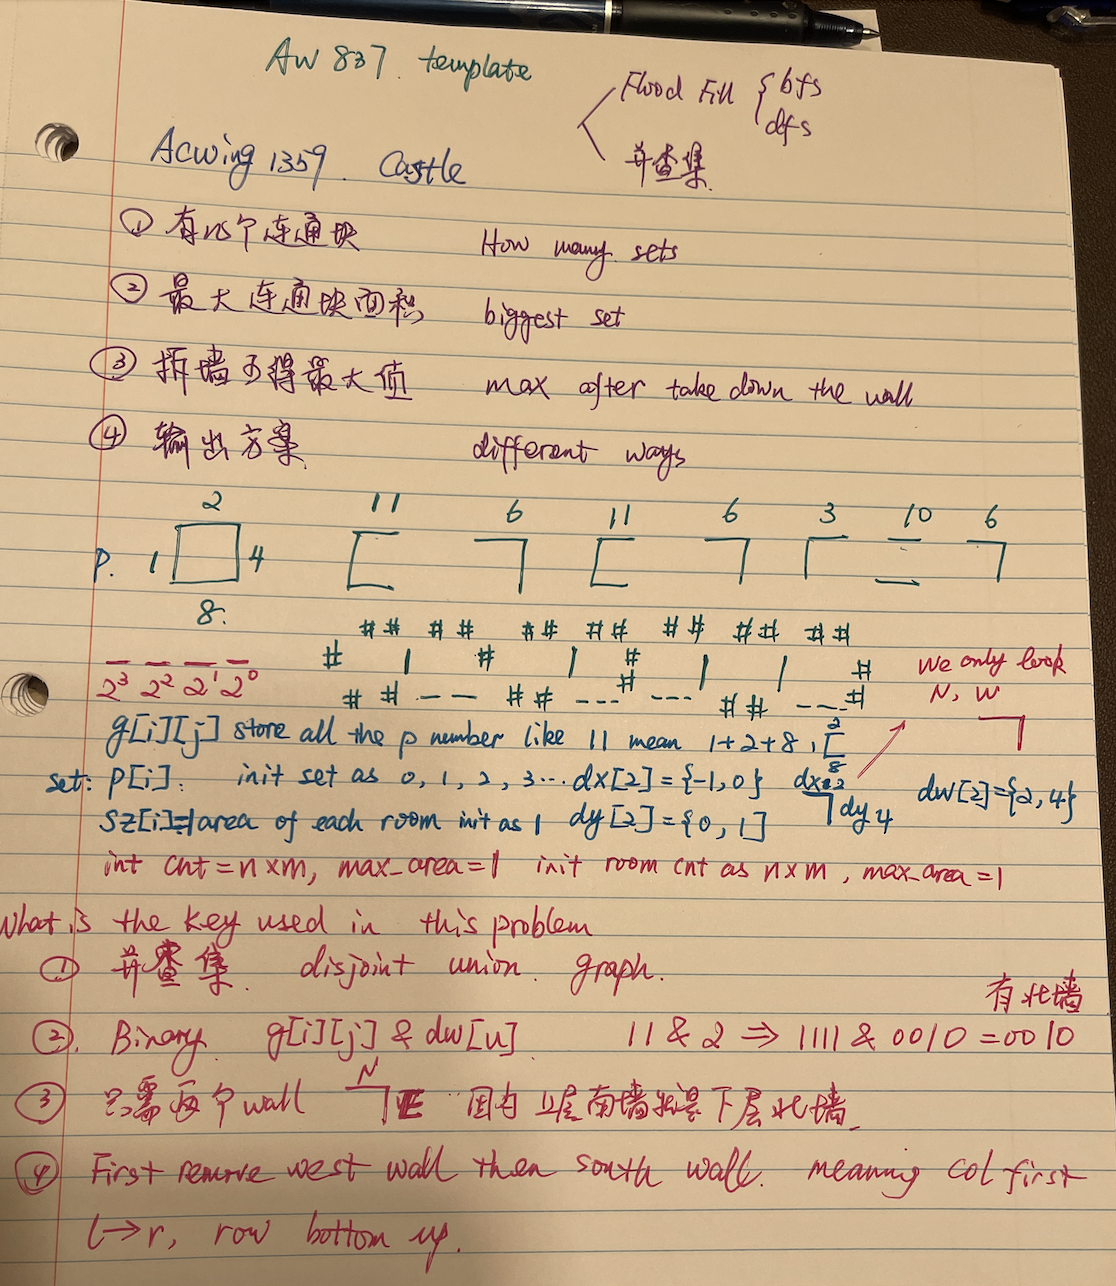 AW 837. template
Flood Fill { bfs
dfs
并查集.
Acwing 1359. Castle
① 有几个连通块 How many sets
② 最大连通块面积 biggest set
③ 拆墙可得最大值 max after take down the wall
④ 输出方案. different ways
2 11 6 11 6 3 10 6
P. 1 4
8.
# # # # # # # # # # # # # #
# | # | # | | #
# # - - # # # --- --- # # --- #
2³ 2² 2¹ 2⁰
We only look
N, W
g[i][j] store all the p number like 11 mean 1+2+8, 2 8
set: P[i]: init set as 0, 1, 2, 3... dx[2]={-1,0} dy 4 dw[2]={2,4}
sz[i]=1 area of each room init as 1 dy[2]={0, 1]
int cnt = n×m, max_area=1 init room cnt as n×m, max_area=1
What is the key used in this problem
① 并查集. disjoint union. graph.
有北墙
②. Binary. g[i][j] & dw[u] 11 & 2 ⇒ 1111 & 0010 = 0010
③ 只需两个wall N E 因为 上层南墙就是下层北墙.
④ First remove west wall then south wall. meaning col first
l→r, row bottom up.